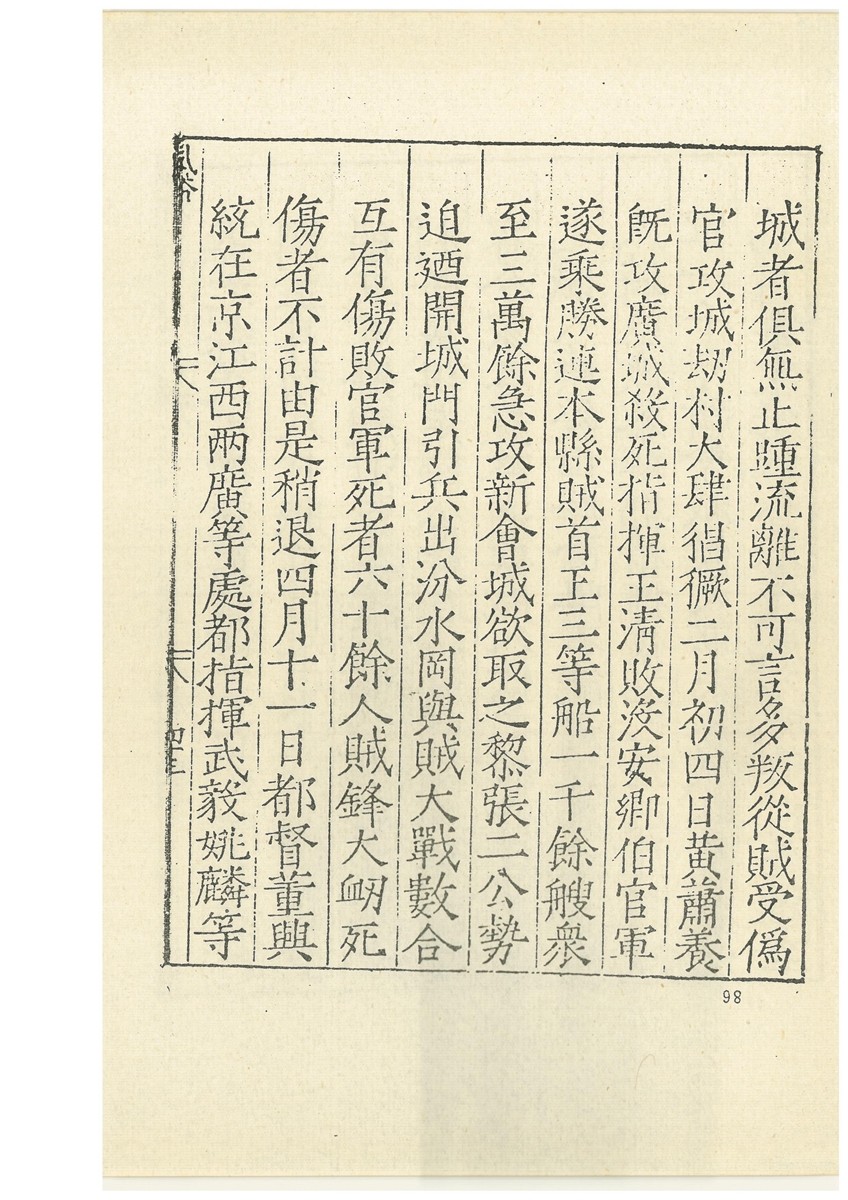 城者俱無止踵流離不可言多叛從賊受偽
官攻城刼村大肆猖獗二月初四日黄蕭養
既攻廣城殺死指揮王清敗没安卿伯官軍
遂乘勝連本縣賊首王三等船一千餘艘衆
至三萬餘急攻新會城欲取之黎張二公勢
迫廼開城門引兵出汾水岡與賊大戰數合
互有傷敗官軍死者六十餘人賊鋒大衂死
傷者不計由是稍退四月十一日都督董興
統在京江西两廣等處都指揮武毅姚麟等
98